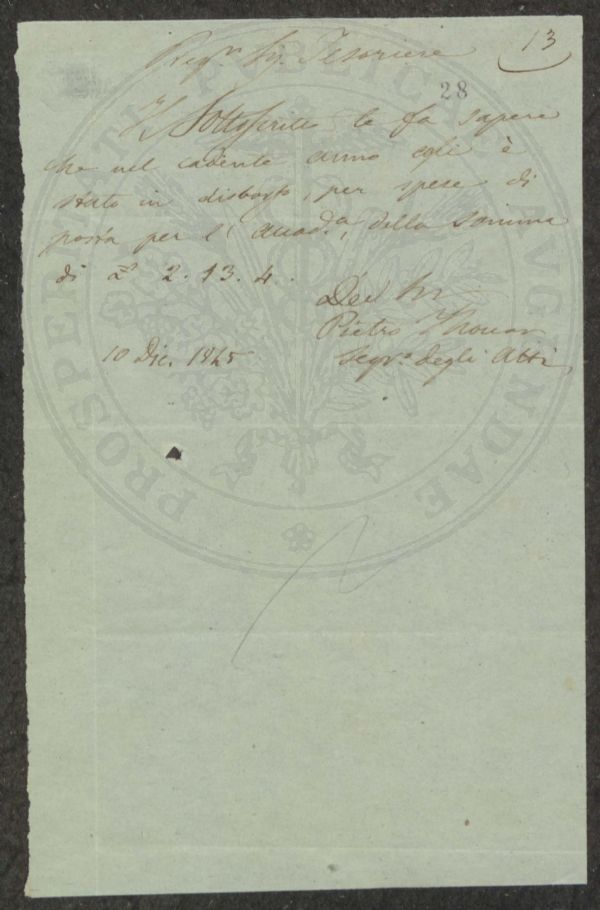 13
Preg.mo Sig. Tesoriere
28
Il Sottoscritto le fa sapere
che nel cadente anno egli è
stato in disborso, per spese di
posta per l' Accad.a, della somma
di £ 2. 13. 4.
Pietro Thouar
10 Dic. 1845
Segr.o degli Atti
PROSPERITATI PUBLICAE AUGENDAE